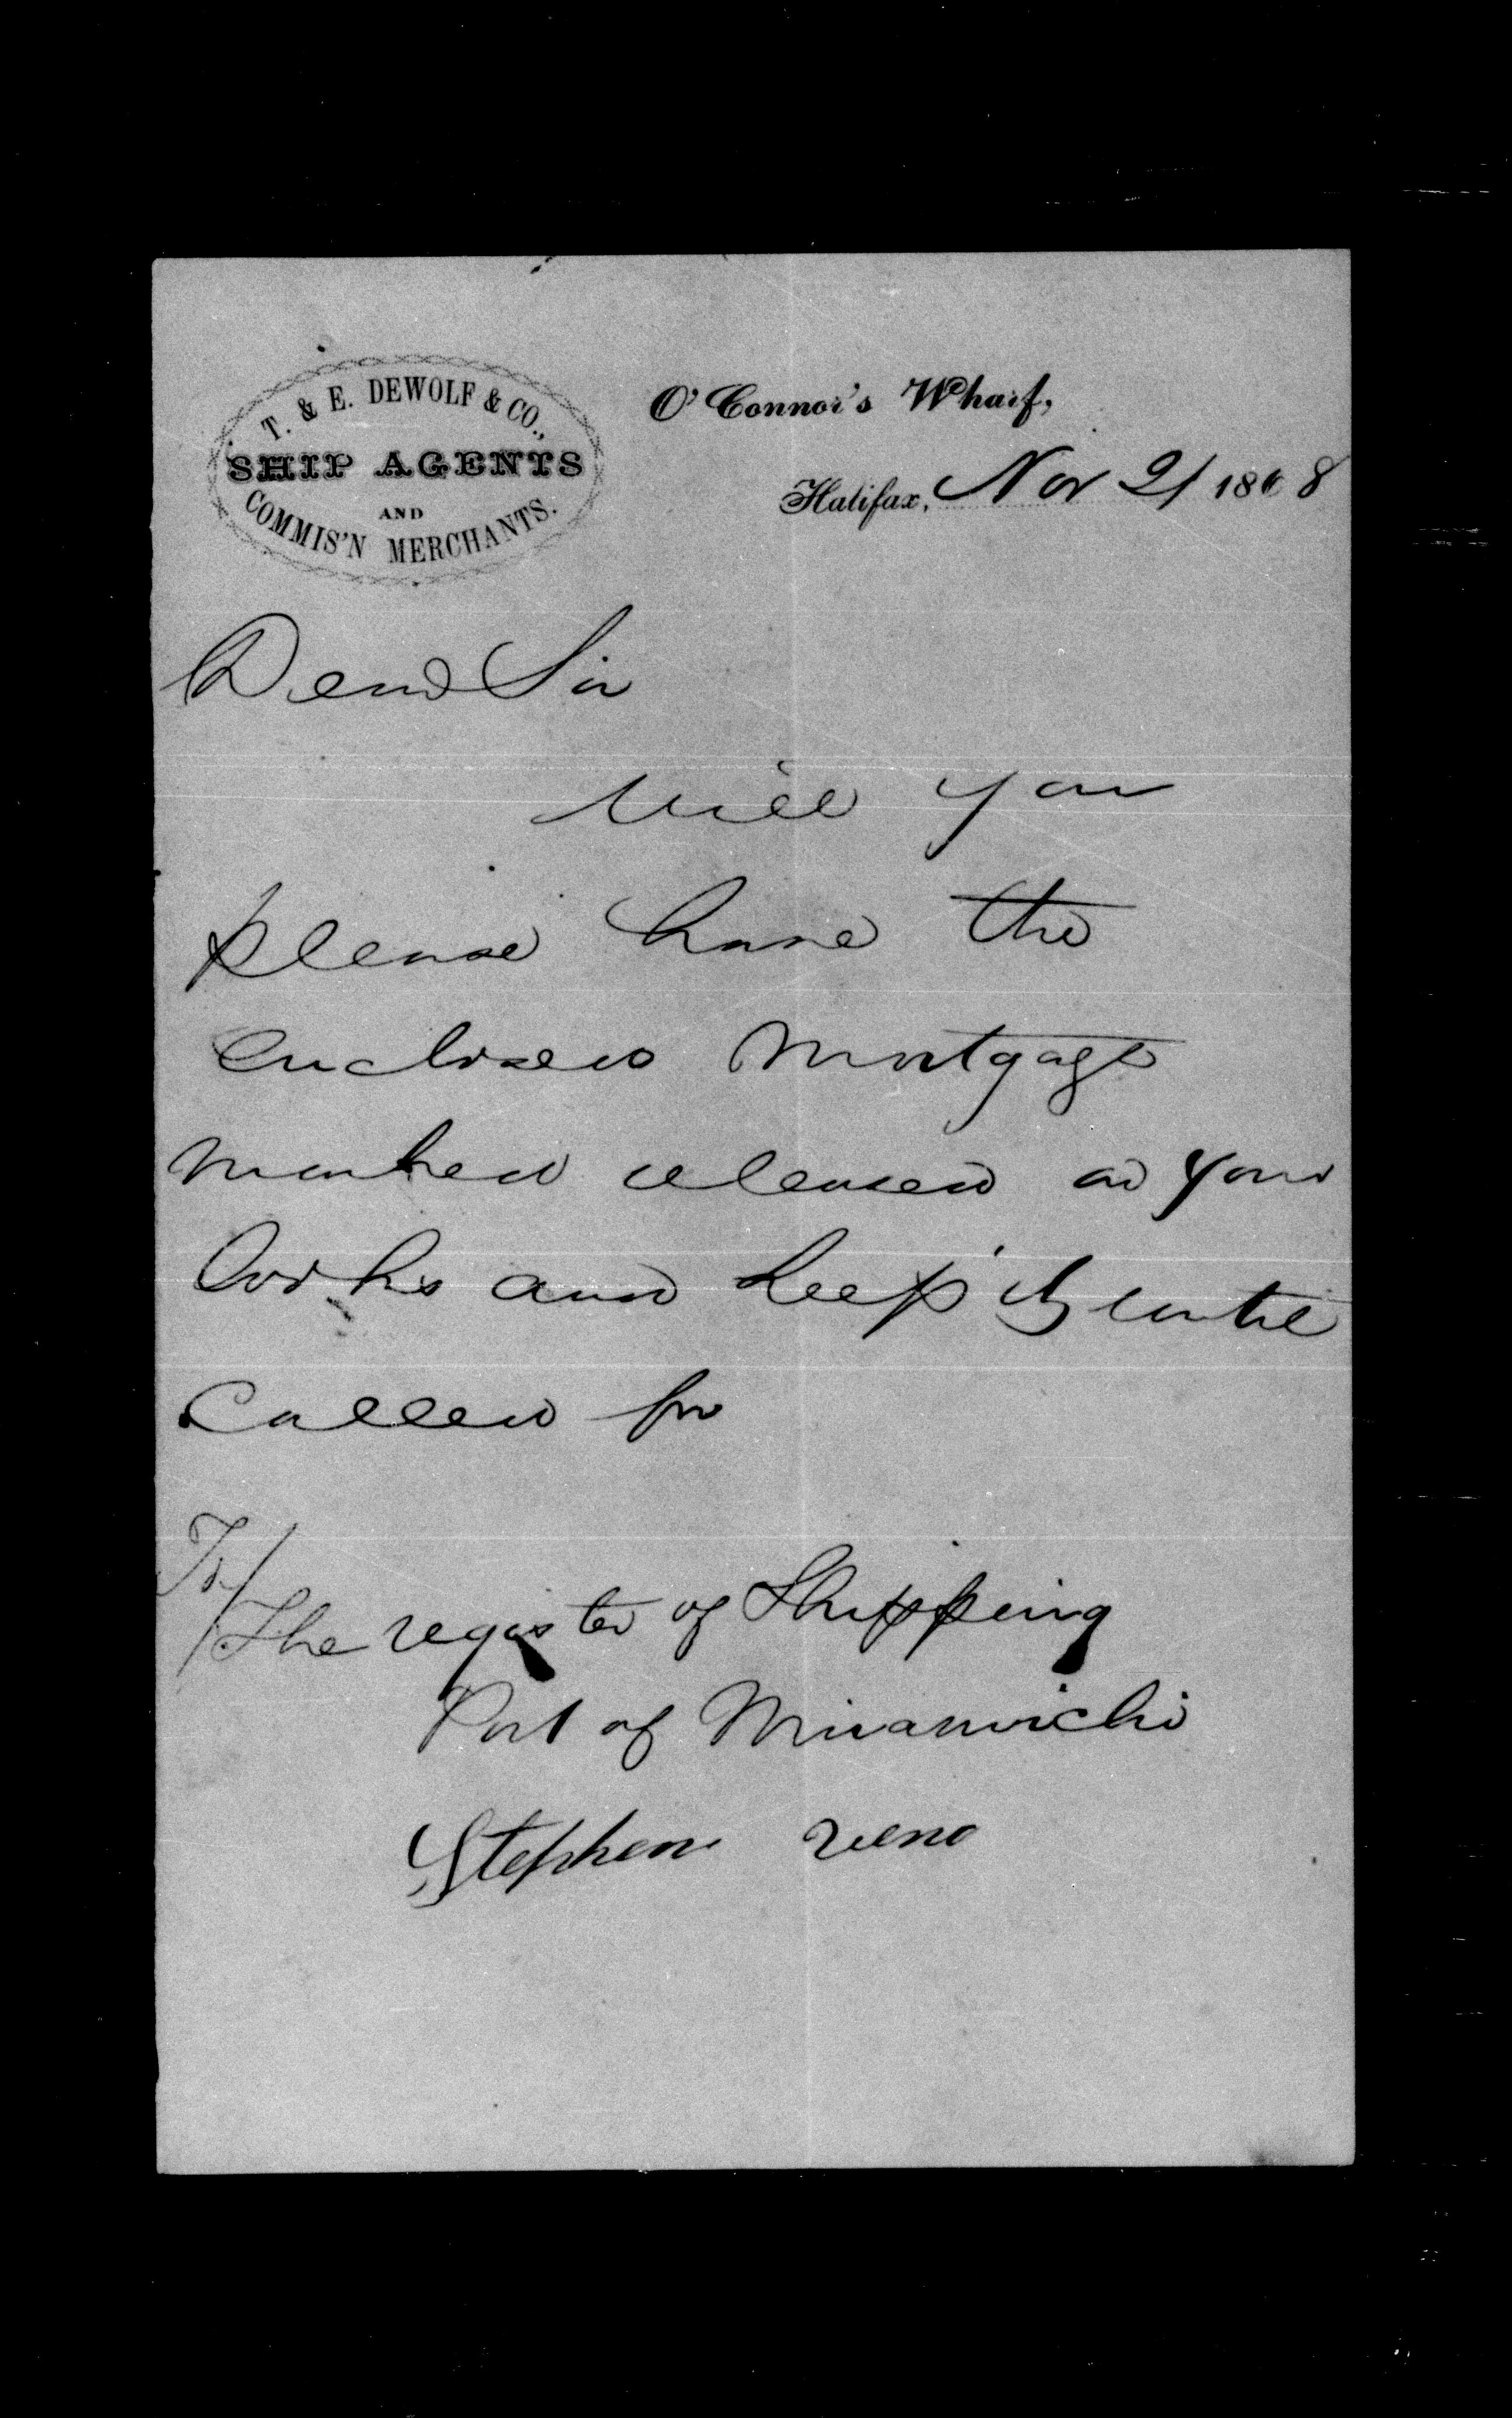 T. & E. DEWOLF & CO.,
SHIP AGENTS
AND
COMMIS'N MERCHANTS.
O'Connor's Wharf,
Halifax, Nov 21 1868
Dear Sir
Will you
please have the
enclosed Mortgage
marked released on your
books and keep it until
Called for
To/
The register of Shipping
Port of Miramichi
Stephen